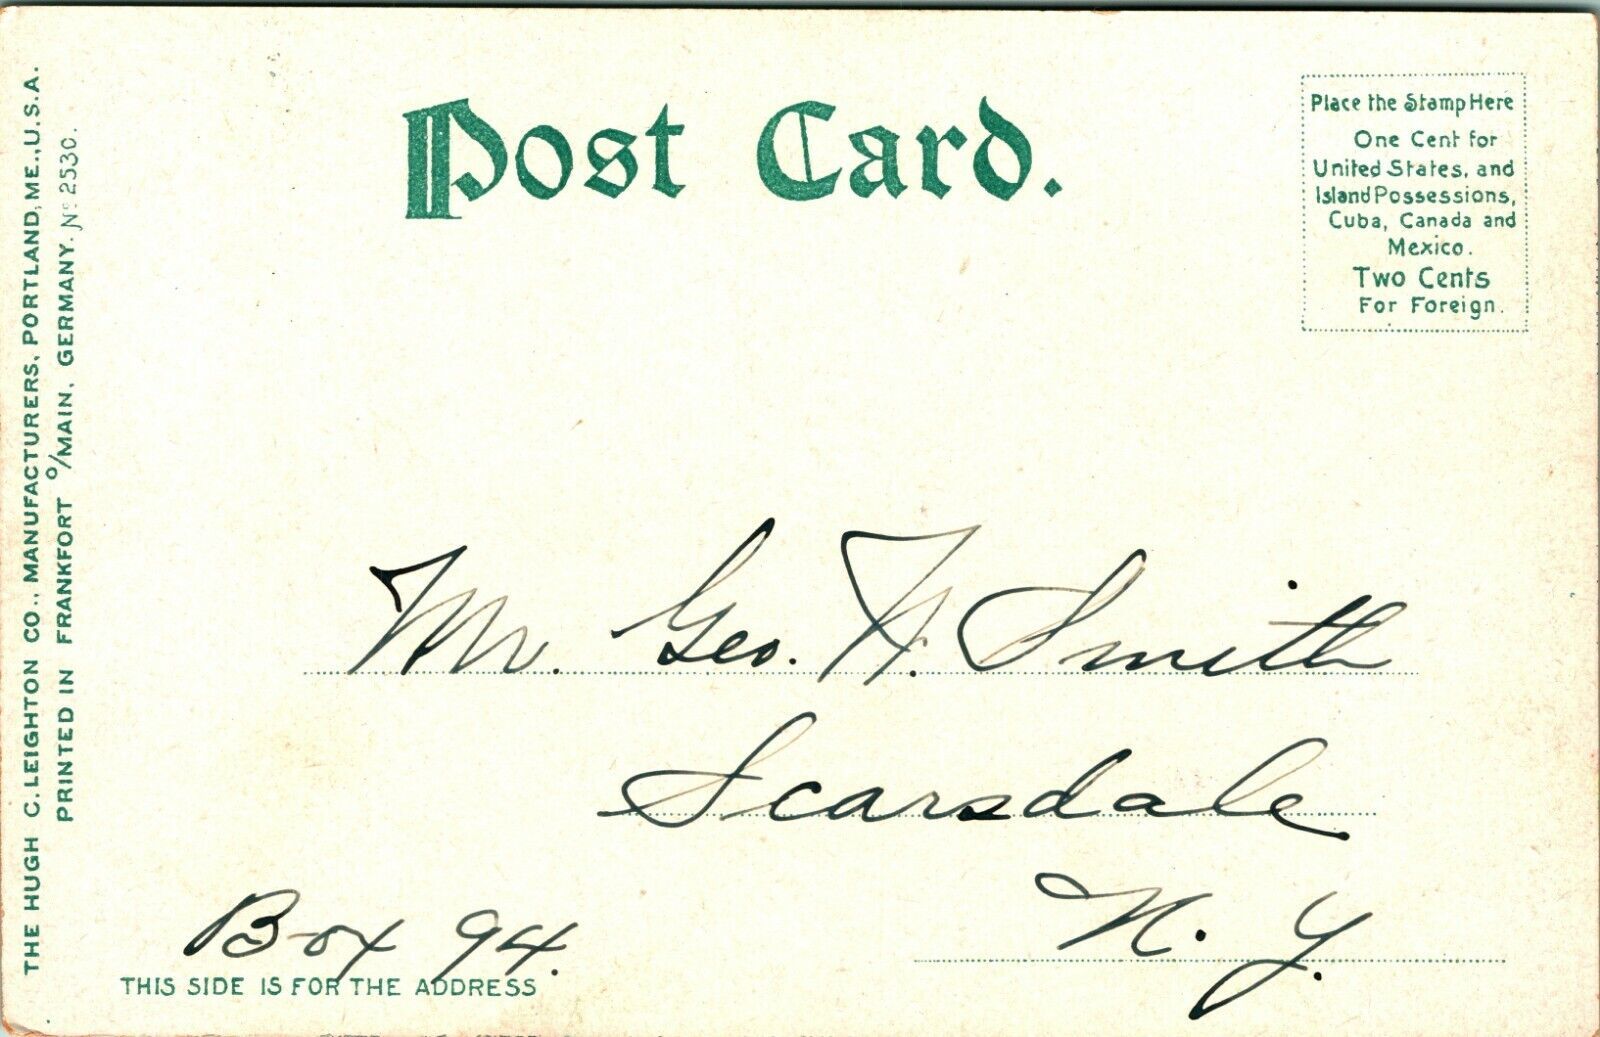 Post Card.
Place the Stamp Here
One Cent for
United States, and
Island Possessions,
Cuba, Canada and
Mexico.
Two Cents
For Foreign.
THE HUGH C. LEIGHTON CO., MANUFACTURERS, PORTLAND, ME., U.S.A.
PRINTED IN FRANKFORT O/MAIN, GERMANY. No 2530.
Mr. Geo. H. Smith
Scarsdale
N. Y.
Box 94.
THIS SIDE IS FOR THE ADDRESS